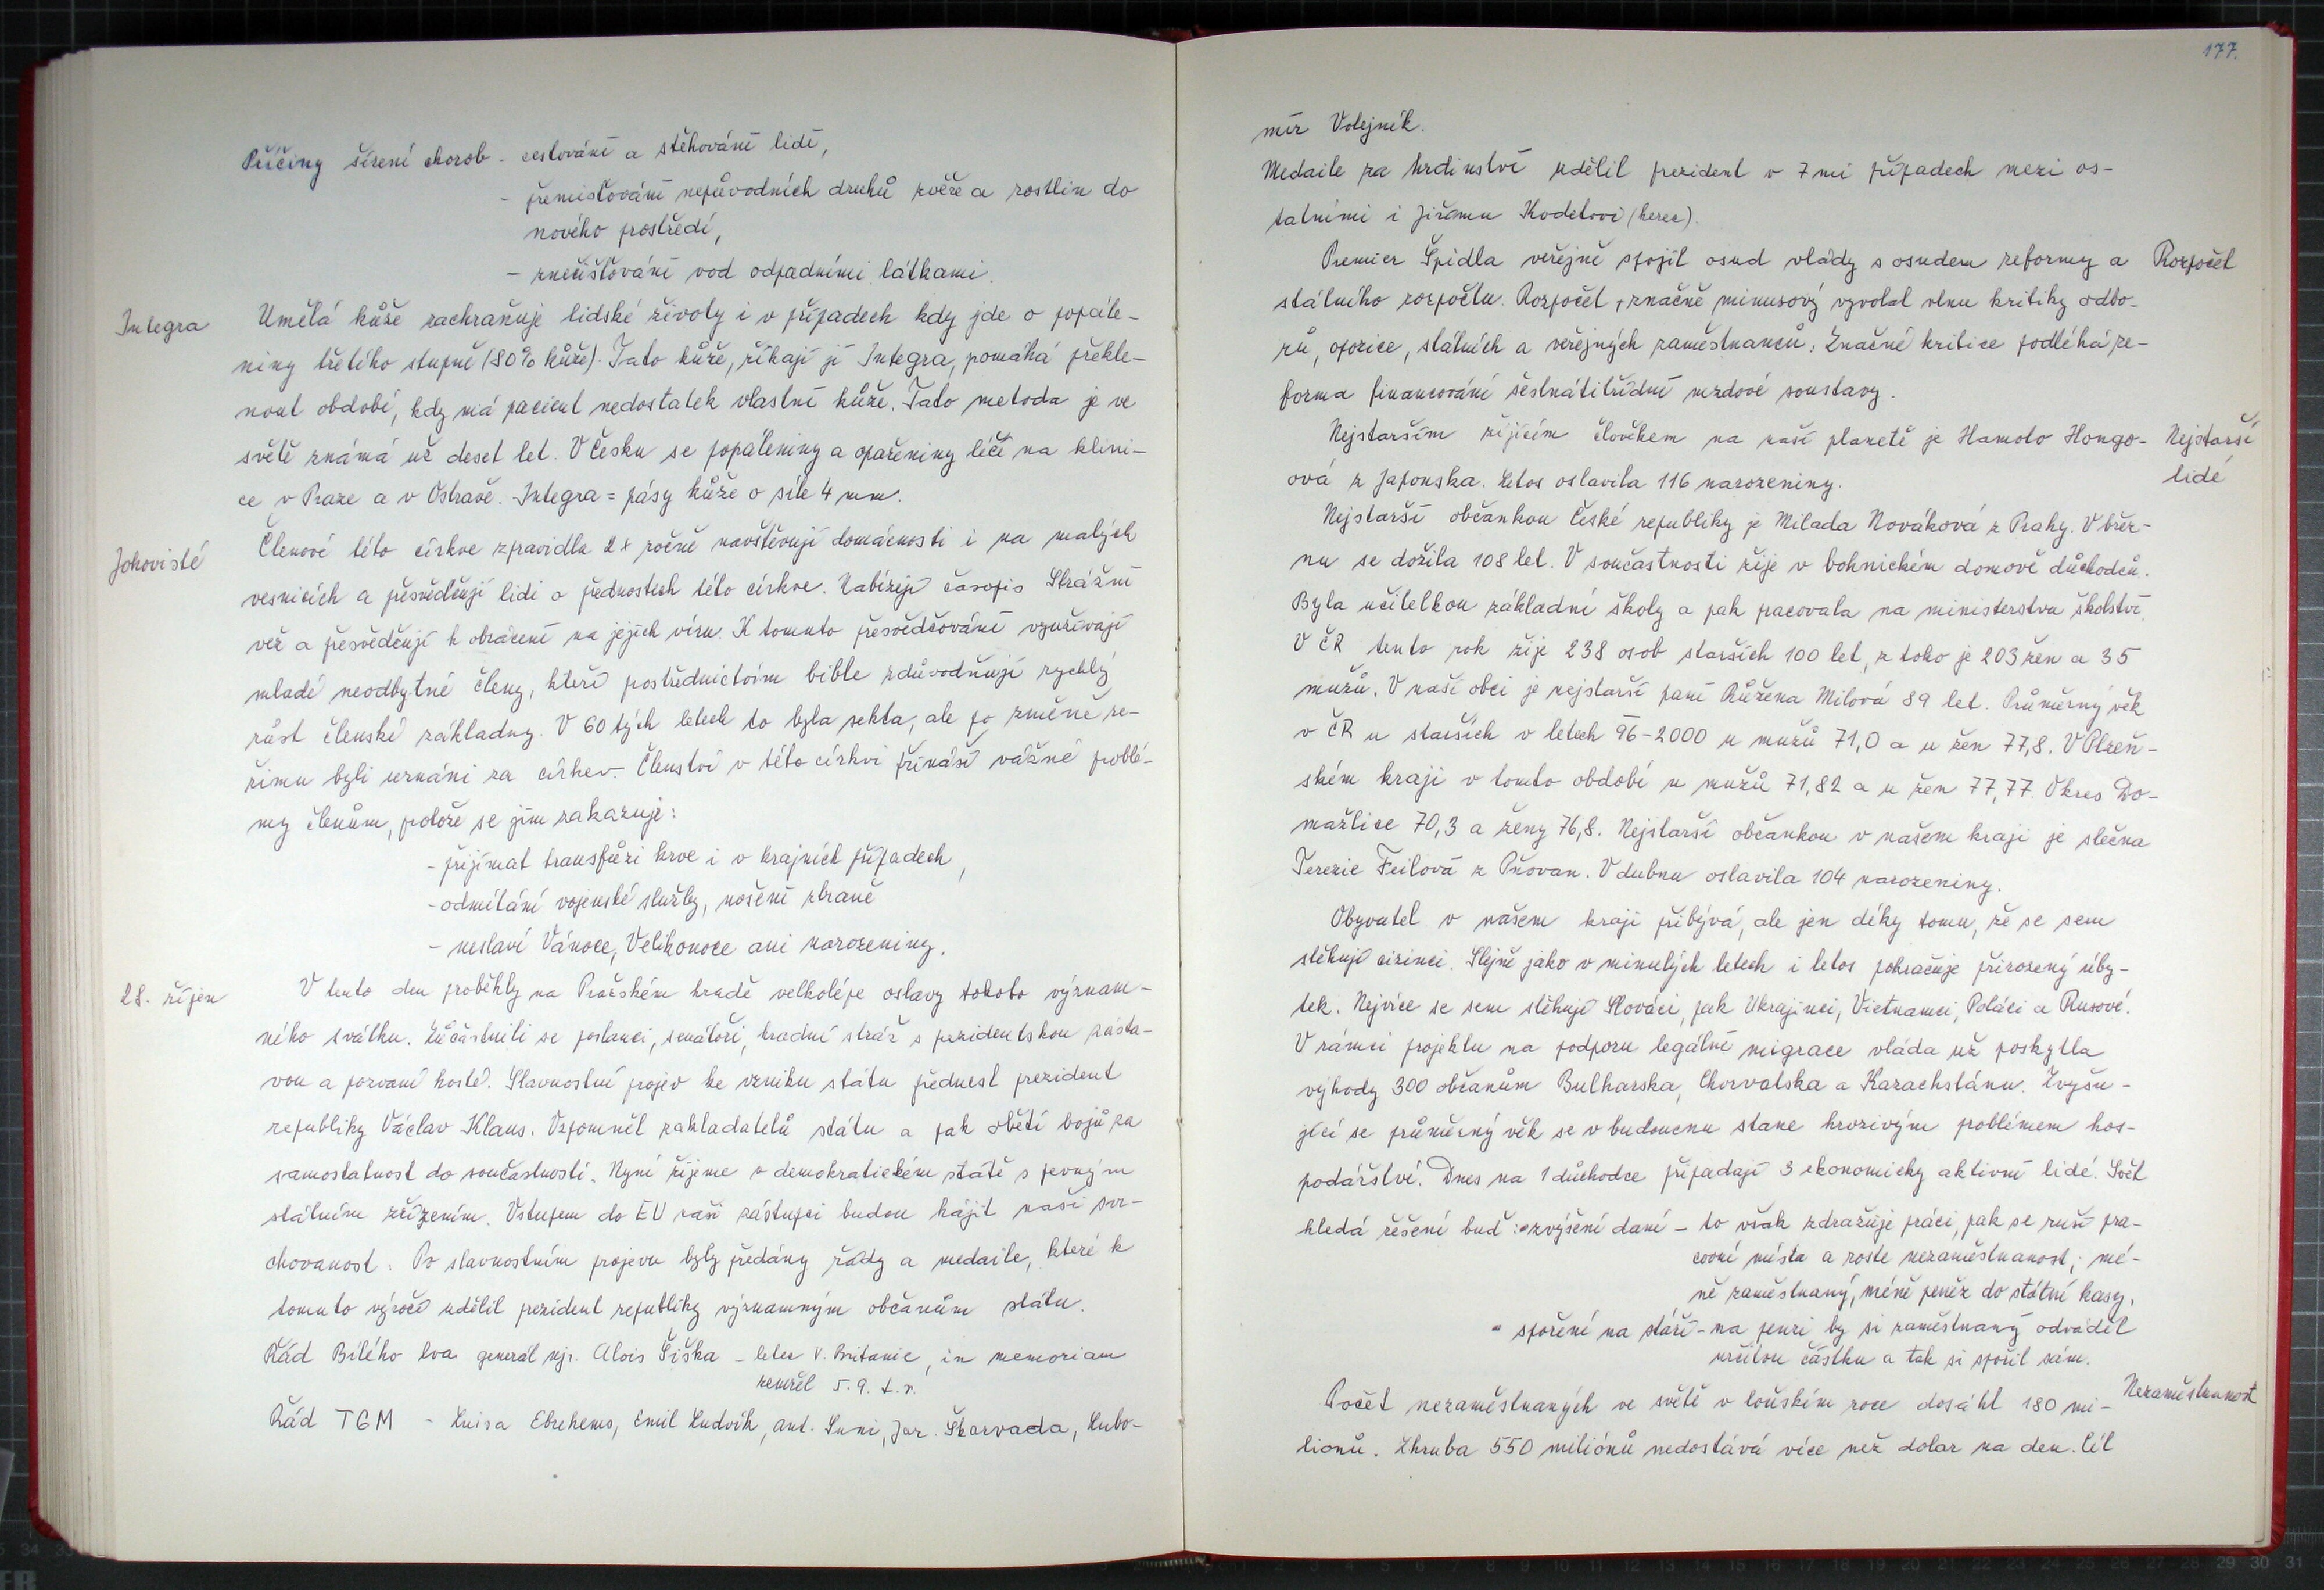 Příčiny šíření chorob - cestování a stěhování lidí,
- přemisťování nepůvodních druhů zvěře a rostlin do
nového prostředí,
- znečišťování vod odpadními látkami.
Integra Umělá kůže zachraňuje lidské životy i v případech kdy jde o popále-
niny třetího stupně (80% kůže). Tato kůže, říkají jí Integra, pomáhá překle-
nout období, kdy má pacient nedostatek vlastní kůže. Tato metoda je ve
světě známá už deset let. V Česku se popáleniny a opařeniny léčí na klini-
ce v Praze a v Ostravě. Integra = pásy kůže o síle 4 mm.
Jehovisté Členové této církve zpravidla 2x ročně navštěvují domácnosti i na malých
vesnicích a přesvědčují lidi o přednostech této církve. Nabízejí časopis Strážní
věž a přesvědčují k obrácení na jejich víru. K tomuto přesvědčování využívají
mladé neodbytné členy, kteří prostřednictvím bible zdůvodňují rychlý
růst členské základny. V 60 tých letech to byla sekta, ale po změně re-
žimu byli uznáni za církev. Členství v této církvi přináší vážné problé-
my členům, protože se jim zakazuje:
- přijímat transfůzi krve i v krajních případech,
- odmítání vojenské služby, nošení zbraně
- neslaví Vánoce, Velikonoce ani narozeniny.
28. říjen V tento den proběhly na Pražském hradě velkolépe oslavy tohoto význam-
ného svátku. Zůčastnili se poslanci, senátoři, hradní stráž s prezidentskou zásta-
vou a pozvaní hosté. Slavnostní projev ke vzniku státu přednesl prezident
republiky Václav Klaus. Vzpomněl zakladatelů státu a pak obětí bojů za
samostatnost do součastnosti. Nyní žijeme v demokratickém státě s pevným
státním zřízením. Vstupem do EU naši zástupci budou hájit naši svr-
chovanost. Po slavnostním projevu byly předány řády a medaile, které k
tomuto výročí udělil prezident republiky významným občanům státu.
Řád Bílého lva generál mjr. Alois Šiška - letec V. Britanie, in memoriam
zemřel 5.9. t.r.
Řád TGM - Luisa Ebrehems, Emil Ludvík, ant. Suni, Jar. Škarvada, Lubo-
177.
mír Volejník.
Medaile za hrdinství udělil prezident v 7mi případech mezi os-
tatními i Jiřímu Kodetovi (herec).
Premier Špidla veřejně spojil osud vlády s osudem reformy a Rozpočet
státního rozpočtu. Rozpočet značně minusový vyvolal vlnu kritiky odbo-
rů, opozice, státních a veřejných zaměstnanců. Značné kritice podléhá re-
forma financování šestnáctitřídní mzdové soustavy.
Nejstarším žijícím člověkem na naší planetě je Hamoto Hongo- Nejstarší
ová z Japonska. Letos oslavila 116 narozeniny. lidé
Nejstarší občankou České republiky je Milada Nováková z Prahy. V břez-
nu se dožila 108 let. V součastnosti žije v bohnickém domově důchodců.
Byla učitelkou základní školy a pak pracovala na ministerstvu školství.
V ČR tento rok žije 238 osob starších 100 let, z toho je 203 žen a 35
mužů. V naší obci je nejstarší paní Růžena Milová 89 let. Průměrný věk
v ČR u starších v letech 96-2000 u mužů 71,0 a u žen 77,8. V Plzeň-
ském kraji v tomto období u mužů 71,82 a u žen 77,77. Okres Do-
mažlice 70,3 a ženy 76,8. Nejstarší občankou v našem kraji je slečna
Terezie Feilová z Pňovan. V dubnu oslavila 104 narozeniny.
Obyvatel v našem kraji přibývá, ale jen díky tomu, že se sem
stěhují cizinci. Stejně jako v minulých letech i letos pokračuje přirozený úby-
tek. Nejvíce se sem stěhují Slováci, pak Ukrajinci, Vietnamci, Poláci a Rusové.
V rámci projektu na podporu legální migrace vláda už poskytla
výhody 300 občanům Bulharska, Chorvatska a Kazachstánu. Zvyšu-
jící se průměrný věk se v budoucnu stane hrozivým problémem hos-
podářství. Dnes na 1 důchodce připadají 3 ekonomicky aktivní lidé. Svět
hledá řešení buď: • zvýšení daní - to však zdražuje práci, pak se ruší pra-
covní místa a roste nezaměstnanost, mé-
ně zaměstnaný, méně peněz do státní kasy.
• spoření na stáří - na penzi by si zaměstnaný odváděl
určitou částku a tak si spořil sám.
Počet nezaměstnaných ve světě v loňském roce dosáhl 180 mi- Nezaměstnanost
lionů. Zhruba 550 miliónů nedostává více než dolar na den. Cíl